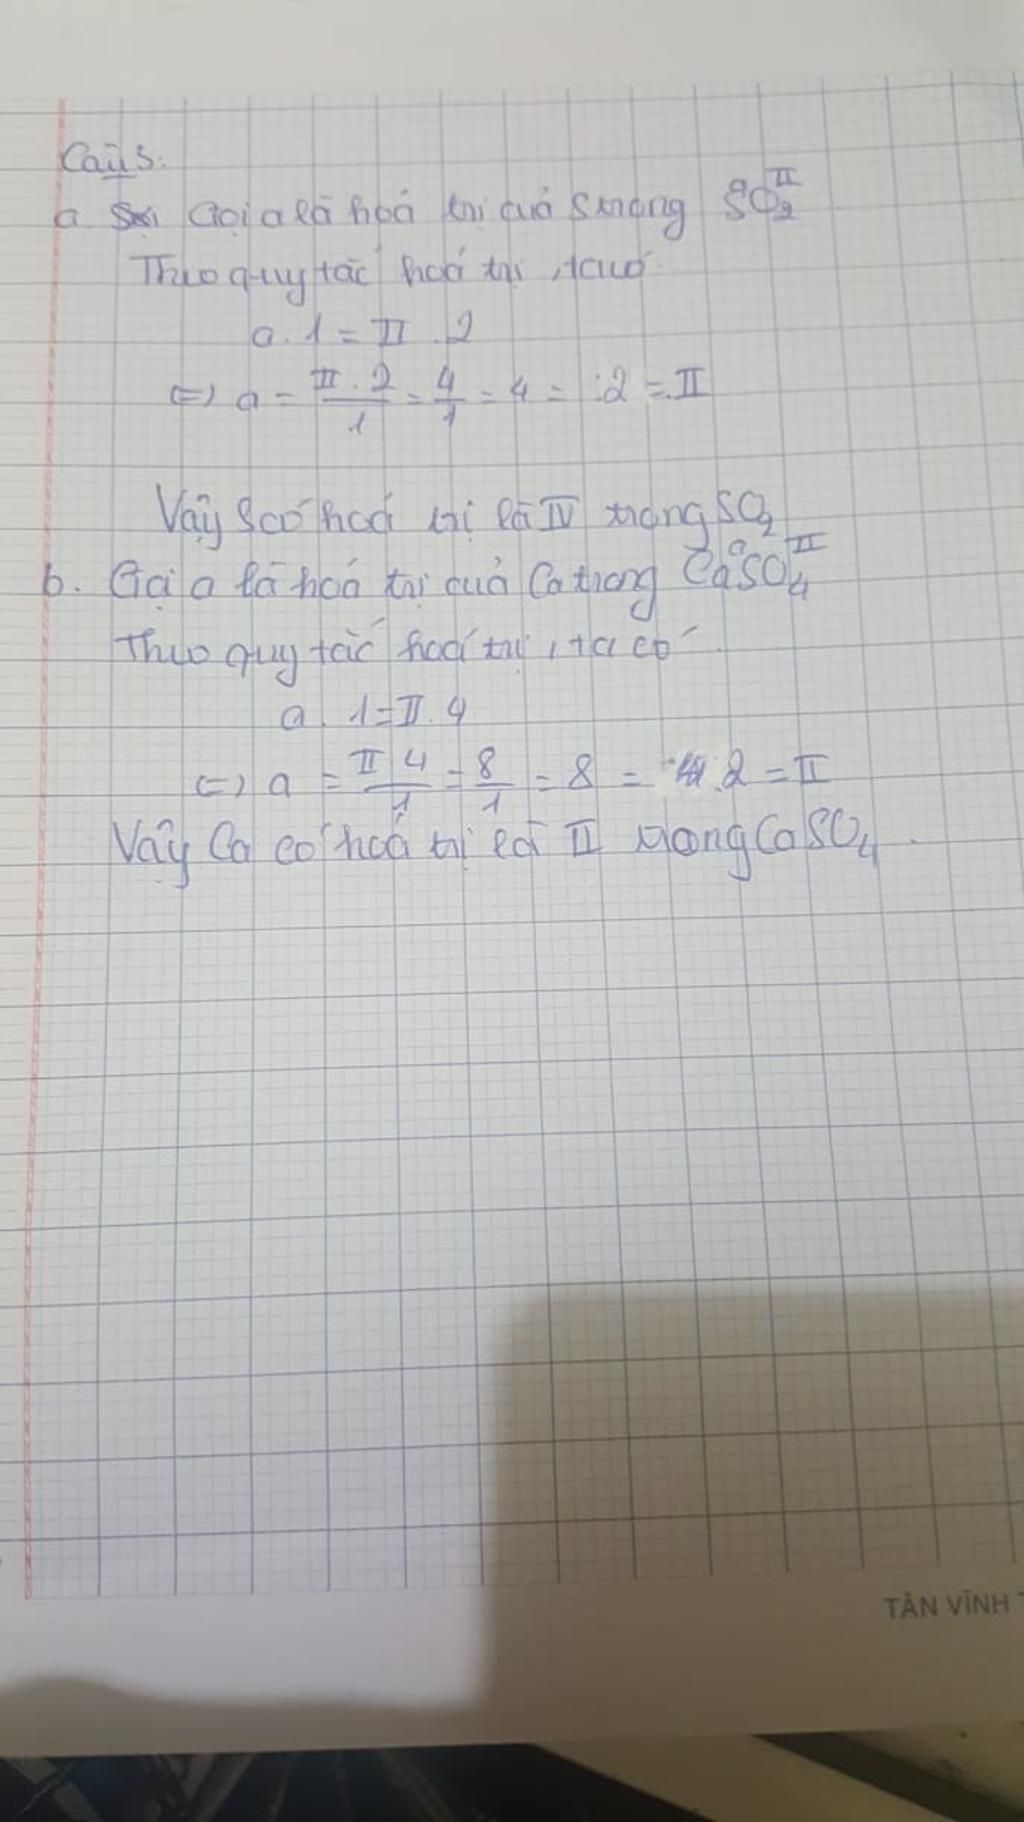 Câu 5:
a Gọi a là hoá trị củả S trong SO₂ a II
Theo quy tắc hoá trị, ta có
a. 1 = II . 2
(=) a = II . 2 / 1 = 4 / 1 = 4 = :2 = II
Vậy S có hoá trị là IV trong SO₂
b. Gọi a là hoá trị củả Ca trong CaSO₄ a II
Theo quy tắc hoá trị, ta có
a. 1 = II. 4
(=) a = II 4 / 1 = 8 / 1 = 8 = 4. 2 = II
Vậy Ca có hoá trị là II trong CaSO₄.
TÂN VĨNH